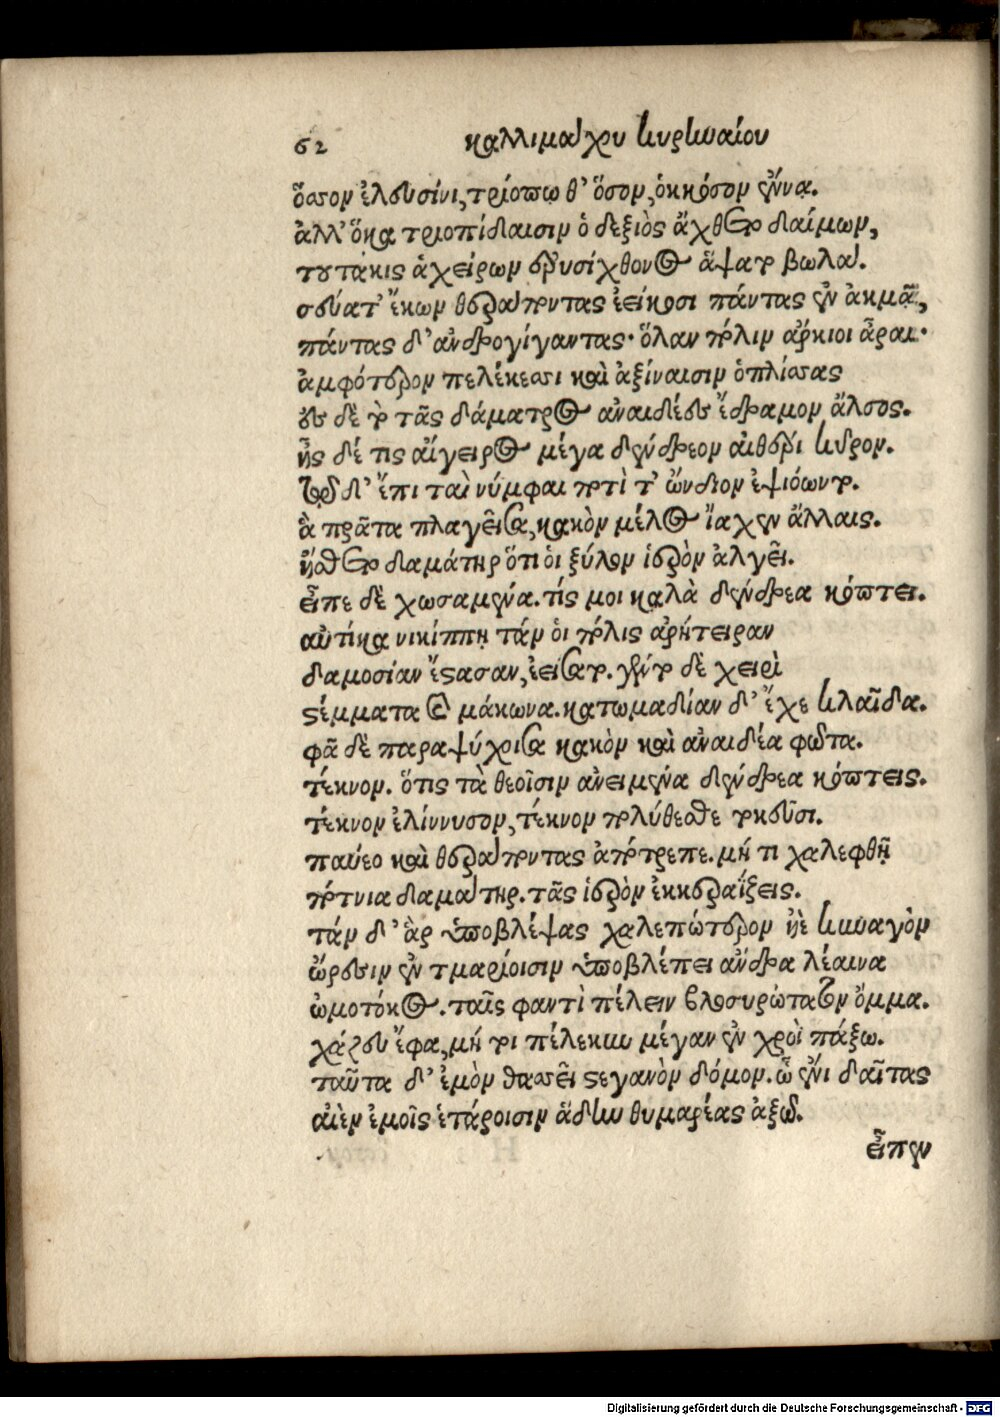 62 καλλιμάχου κυρηναίου
ὅσσον ἐλευσῖνι, τριόπῳ θ' ὅσον, ὁκκόσον ἔννᾳ.
ἀλλ' ὅκα τριοπίδαισιν ὁ δεξιὸς ἄχθετο δαίμων,
τουτάκις ἁ χείρων ἐρυσίχθονος ἅψατο βωλά.
σεύατ' ἔχων θεράποντας ἐείκοσι πάντας ἐν ἀκμᾷ,
πάντας δ' ἀνδρογίγαντας· ὅλαν πόλιν ἄρκιοι ἆραι·
ἀμφότερον πελέκεσσι καὶ ἀξίναισιν ὁπλίσσας
ἐς δὲ τὸ τᾶς δάματρος ἀναιδέες ἔδραμον ἄλσος.
ἦς δέ τις αἴγειρος μέγα δένδρεον αἰθέρι κῦρον.
τῷ δ' ἔπι ταὶ νύμφαι ποτὶ τ' ὤνδιον ἐψιόωντο.
ἃ πρᾶτα πλαγεῖσα, κακὸν μέλος ἴαχεν ἄλλαις.
ᾔσθετο δαμάτηρ ὅτι οἱ ξύλον ἱερὸν ἀλγεῖ.
εἶπε δὲ χωσαμένα. τίς μοι καλὰ δένδρεα κόπτει.
αὐτίκα νικίππῃ τάν οἱ πόλις ἀρήτειραν
δαμοσίαν ἔστασαν, ἐείσατο. γέντο δὲ χειρὶ
στέμματα καὶ μάκωνα. κατωμαδίαν δ' ἔχε κλαῖδα.
φᾶ δὲ παραψύχοισα κακὸν καὶ ἀναιδέα φῶτα.
τέκνον. ὅτις τὰ θεοῖσιν ἀνειμένα δένδρεα κόπτεις.
τέκνον ἐλίννυσον, τέκνον πολύθεστε τοκεῦσι.
παύεο καὶ θεράποντας ἀπότρεπε. μή τι χαλεφθῇ
πότνια δαμάτηρ. τᾶς ἱερὸν ἐκκεραΐξεις.
τὰν δ' ἂρ ὑποβλέψας χαλεπώτερον ἠὲ κυναγὸν
ὤρεσιν ἐν τμαρίοισιν ὑποβλέπει ἄνδρα λέαινα
ὠμοτόκος. ταῖς φαντὶ πέλειν βλοσυρώτατον ὄμμα.
χάζευ ἔφα, μή τοι πέλεκυν μέγαν ἐν χροῒ πάξω.
ταῦτα δ' ἐμὸν θασσεῖ στεγανὸν δόμον. ᾧ ἔνι δαῖτας
αἰὲν ἐμοῖς ἑτάροισιν ἅδην θυμαρέας ἀξῶ.
εἶπεν
Digitalisierung gefördert durch die Deutsche Forschungsgemeinschaft - DFG